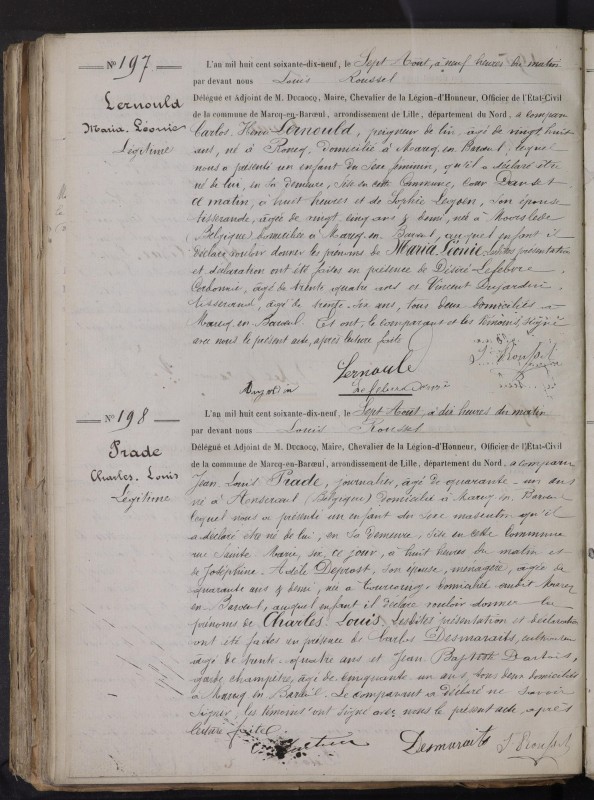 N° 197
Lernould
Maria, Léonie
Légitime
L'an mil huit cent soixante-dix-neuf, le Sept Août, à neuf heures du matin
par devant nous Louis Roussel
Délégué et Adjoint de M. Ducrocq, Maire, Chevalier de la Légion-d'Honneur, Officier de l'État-Civil
de la commune de Marcq-en-Barœul, arrondissement de Lille, département du Nord, a comparu
Carlos Henri Lernould, peigneur de lin, âgé de vingt huit
ans, né à Roncq, domicilié à Marcq en Barœul, lequel
nous a présenté un enfant du sexe féminin, qu'il a déclaré être
né de lui, en sa demeure, sise en cette Commune, cour Danset
ce matin, à huit heures et de Sophie Legoen, son épouse
tisserande, âgée de vingt cinq ans & demi, née à Moorslede
(Belgique) domiciliée à Marcq en Barœul, auquel enfant il
déclare vouloir donner les prénoms de Maria Léonie, lesdites présentation
et déclaration ont été faites en présence de Désiré Lefebvre,
âgé de trente quatre ans et Vincent Dujardin
tisserand, âgé de trente six ans, tous deux domiciliés à
Marcq en Barœul. Et ont, le comparant et les témoins, signé
avec nous le présent acte, après lecture faite
Lernould
L. Roussel
Dujardin
Lefebvre Désiré
N° 198
Prade
Charles, Louis
Légitime
L'an mil huit cent soixante-dix-neuf, le Sept Août, à dix heures du matin
par devant nous Louis Roussel
Délégué et Adjoint de M. Ducrocq, Maire, Chevalier de la Légion-d'Honneur, Officier de l'État-Civil
de la commune de Marcq-en-Barœul, arrondissement de Lille, département du Nord, a comparu
Jean Louis Prade, journalier, âgé de quarante un ans
né à (Belgique) domicilié à Marcq en Barœul
lequel nous a présenté un enfant du sexe masculin qu'il
a déclaré être né de lui, en sa demeure, sise en cette Commune
rue Sainte Marie, six, ce jour, à huit heures du matin et
de Joséphine Adèle Deprost, son épouse, ménagère, âgée de
quarante ans & demi, née à Tourcoing, domiciliée audit Marcq
en Barœul, auquel enfant il déclare vouloir donner les
prénoms de Charles Louis, lesdites présentation et déclaration
ont été faites en présence de Carlos Desmaraits,
âgé de trente quatre ans et Jean Baptiste
garde champêtre, âgé de cinquante un ans, tous deux domiciliés
à Marcq en Barœul. Le comparant a déclaré ne savoir
signer, les témoins ont signé avec nous le présent acte, après
lecture faite
Desmaraits
L. Roussel